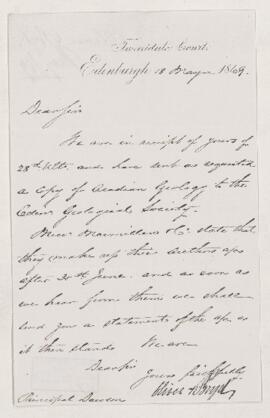 Tweeddale Court,
Edinburgh 18 May 1869.
Dear Sir
We are in receipt of yours of
28th Ulto. and have sent as requested
a copy of Acadian Geology to the
Edin. Geological Society.
Messrs Macmillan & Co. state that
they make up their authors a/cs
after 30th June. and as soon as
we hear from them we shall
send you a statement of the a/c as
it then stands We are
Dear Sir
Yours faithfully
Oliver & Boyd
Principal Dawson